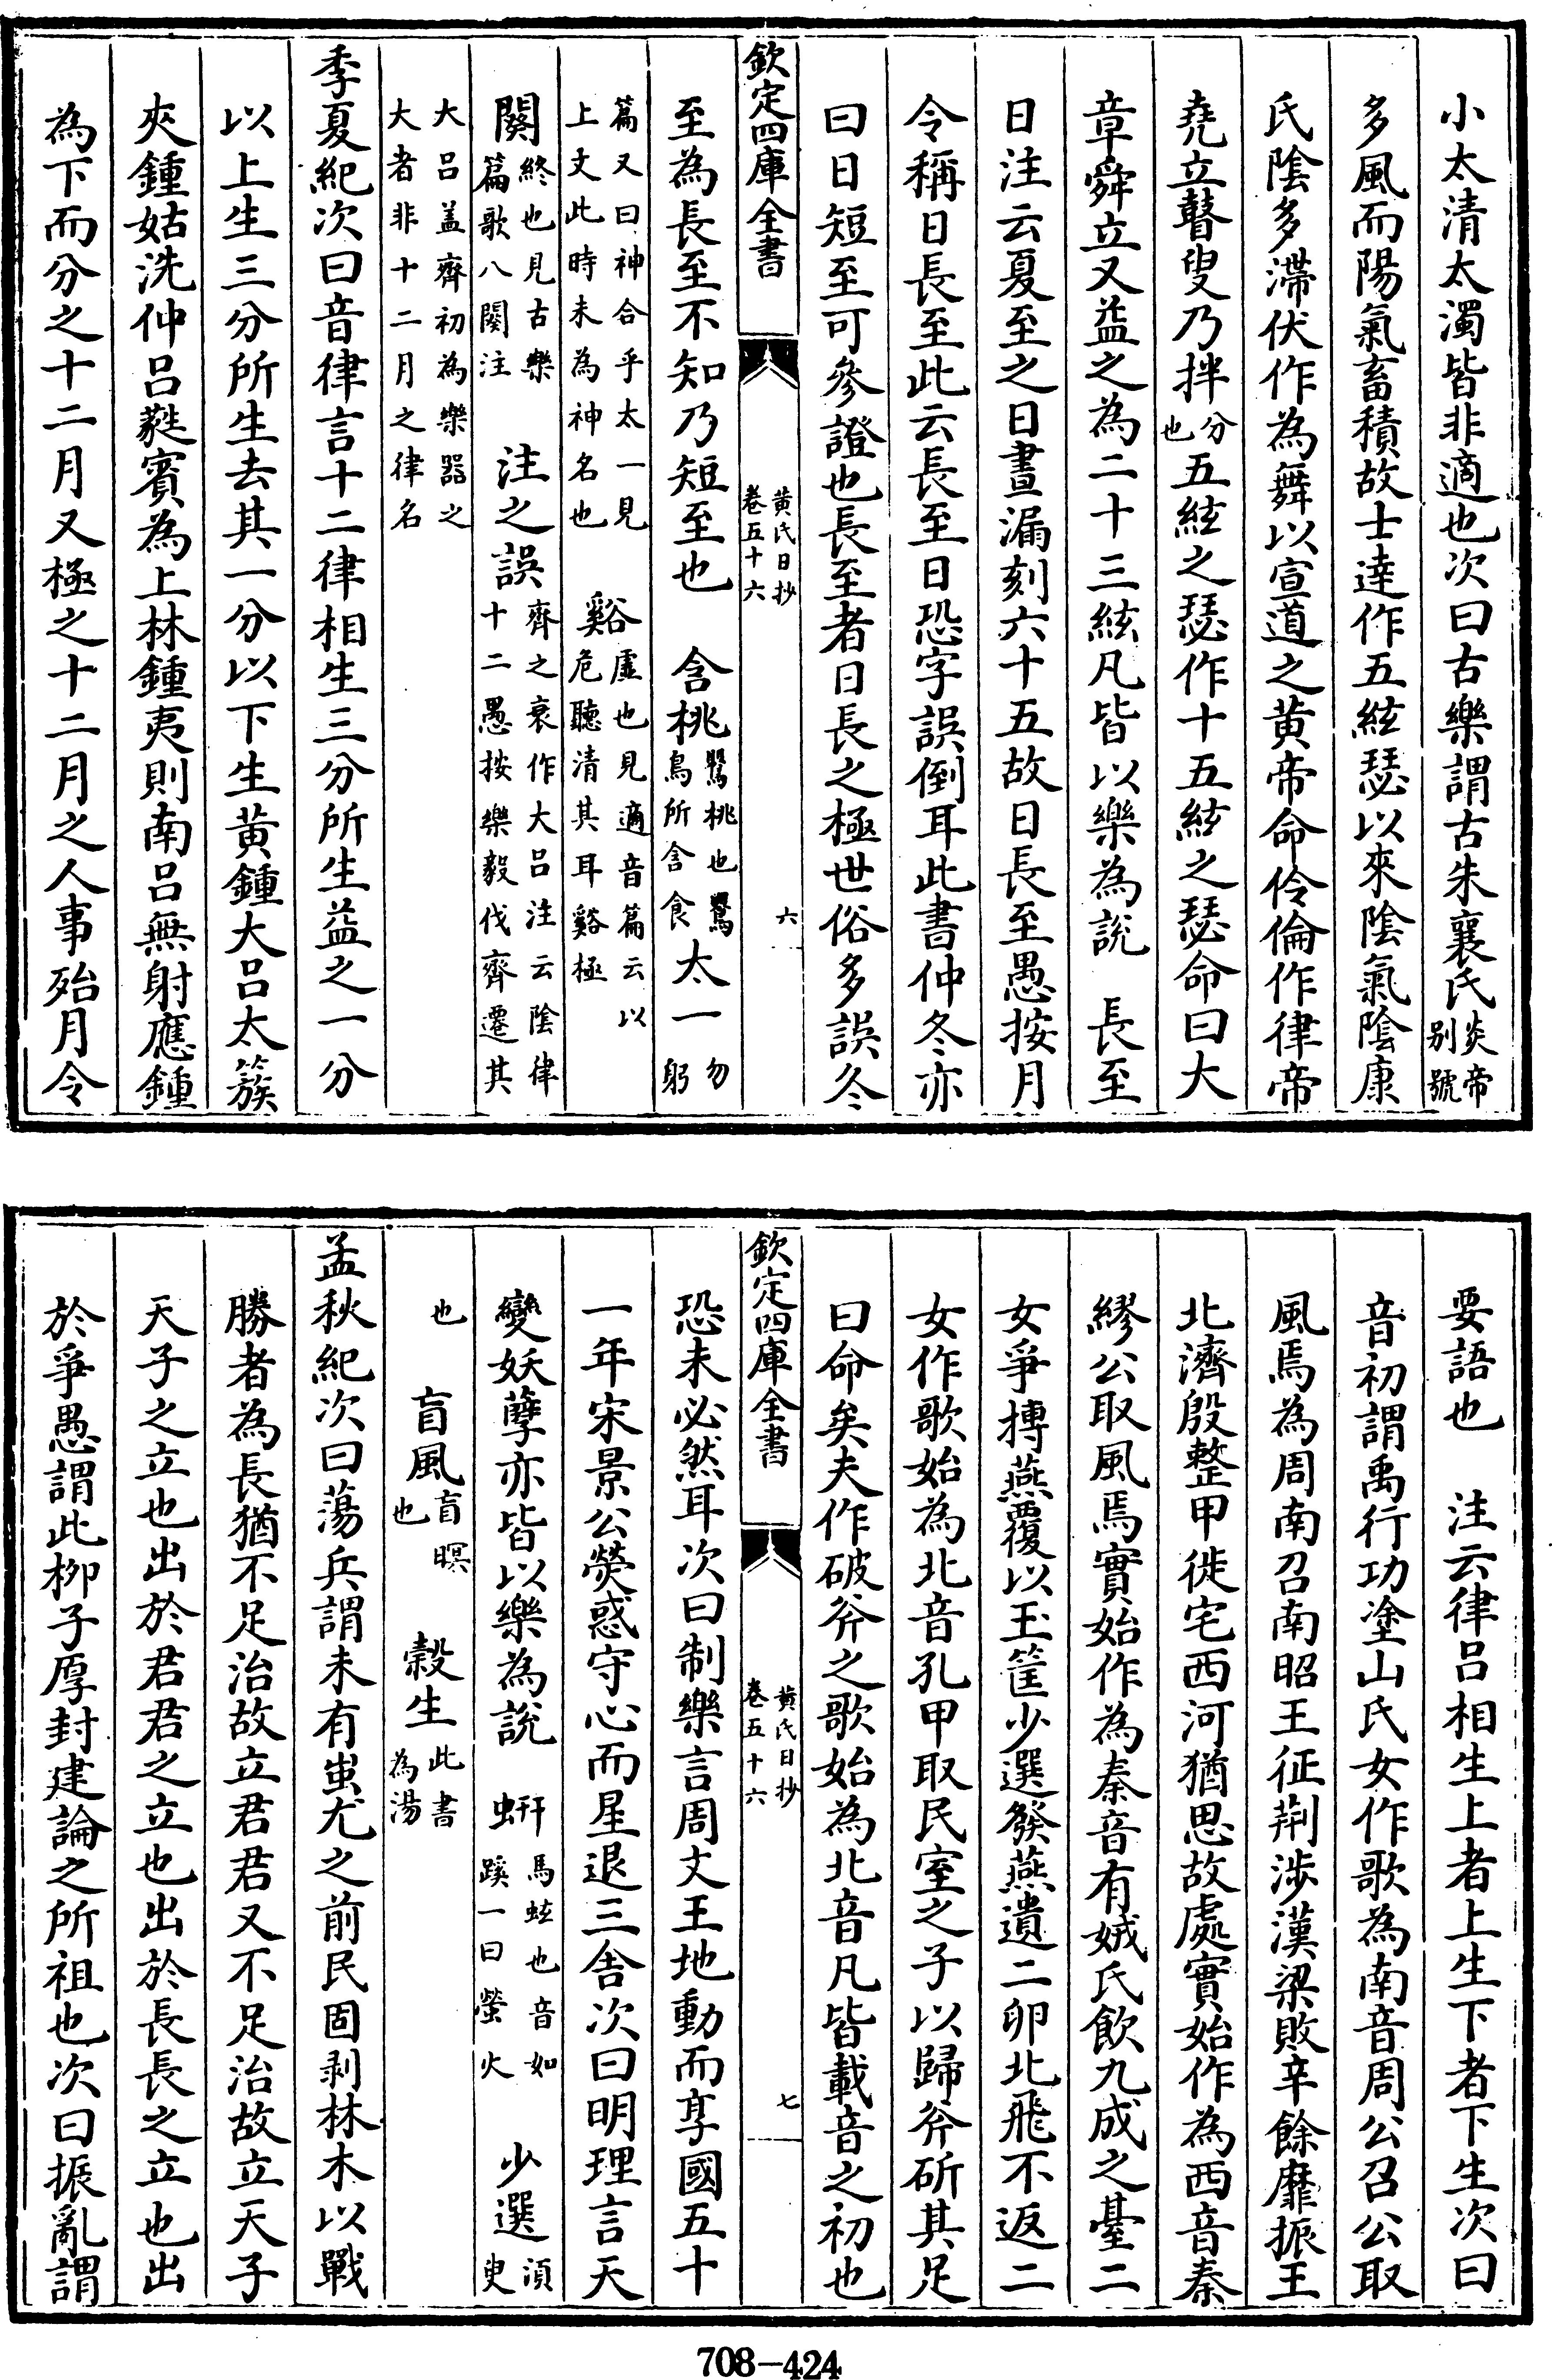 小太清太濁皆非適也次曰古樂謂古朱襄氏炎帝别號
多風而陽氣畜積故士達作五絃瑟以來陰氣陰康
氏陰多滯伏作為舞以宣道之黄帝命伶倫作律帝
堯立瞽叟乃拌分也五絃之瑟作十五絃之瑟命曰大
章舜立又益之為二十三絃凡皆以樂為說　長至
日注云夏至之日晝漏刻六十五故日長至愚按月
令稱日長至此云長至日恐字誤倒耳此書仲冬亦
曰日短至可參證也長至者日長之極世俗多誤冬
欽定四庫全書
黄氏日抄
卷五十六
六
至為長至不知乃短至也　含桃鸎桃也鸎鳥所含食太一勿躬
篇又曰神合乎太一見上文此時未為神名也　谿虚也見適音篇云以危聽清其耳谿極
闋終也見古樂篇歌八闋注　注之誤齊之衰作大吕注云陰律十二愚按樂毅伐齊遷其
大吕盖齊初為樂器之大者非十二月之律名
季夏紀次曰音律言十二律相生三分所生益之一分
以上生三分所生去其一分以下生黄鍾大吕太簇
夾鍾姑洗仲吕蕤賓為上林鍾夷則南吕無射應鍾
為下而分之十二月又極之十二月之人事殆月令
要語也　注云律吕相生上者上生下者下生次曰
音初謂禹行功塗山氏女作歌為南音周公召公取
風焉為周南召南昭王征荆涉漢梁敗辛餘靡振王
北濟殷整甲徙宅西河猶思故處實始作為西音秦
繆公取風焉實始作為秦音有娀氏飲九成之臺二
女爭搏燕覆以玉筐少選發燕遺二卵北飛不返二
女作歌始為北音孔甲取民室之子以歸斧斫其足
曰命矣夫作破斧之歌始為北音凡皆載音之初也
欽定四庫全書
黄氏日抄
卷五十六
七
恐未必然耳次曰制樂言周文王地動而享國五十
一年宋景公熒惑守心而星退三舍次曰明理言天
變妖孽亦皆以樂為說　蚈馬蚿也音如蹊一曰螢火　少選須臾
也　盲風盲暝也　榖生此書為湯
孟秋紀次曰蕩兵謂未有蚩尤之前民固剥林木以戰
勝者為長猶不足治故立君君又不足治故立天子
天子之立也出於君君之立也出於長長之立也出
於爭愚謂此柳子厚封建論之所祖也次曰振亂謂
708-424